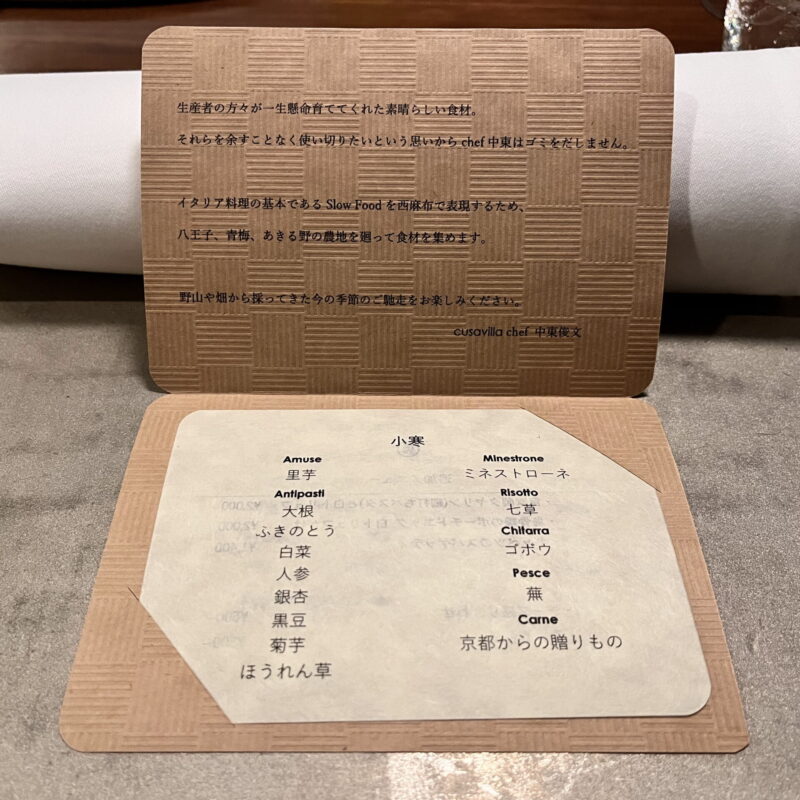 生産者の方々が一生懸命育ててくれた素晴らしい食材。
それらを余すことなく使い切りたいという思いから chef 中東はゴミをだしません。
イタリア料理の基本である Slow Food を西麻布で表現するため、
八王子、青梅、あきる野の農地を廻って食材を集めます。
野山や畑から採ってきた今の季節のご馳走をお楽しみください。
cusavilla chef 中東俊文
小寒
Amuse
里芋
Antipasti
大根
ふきのとう
白菜
人参
銀杏
黒豆
菊芋
ほうれん草
Minestrone
ミネストローネ
Risotto
七草
Chitarra
ゴボウ
Pesce
蕪
Carne
京都からの贈りもの